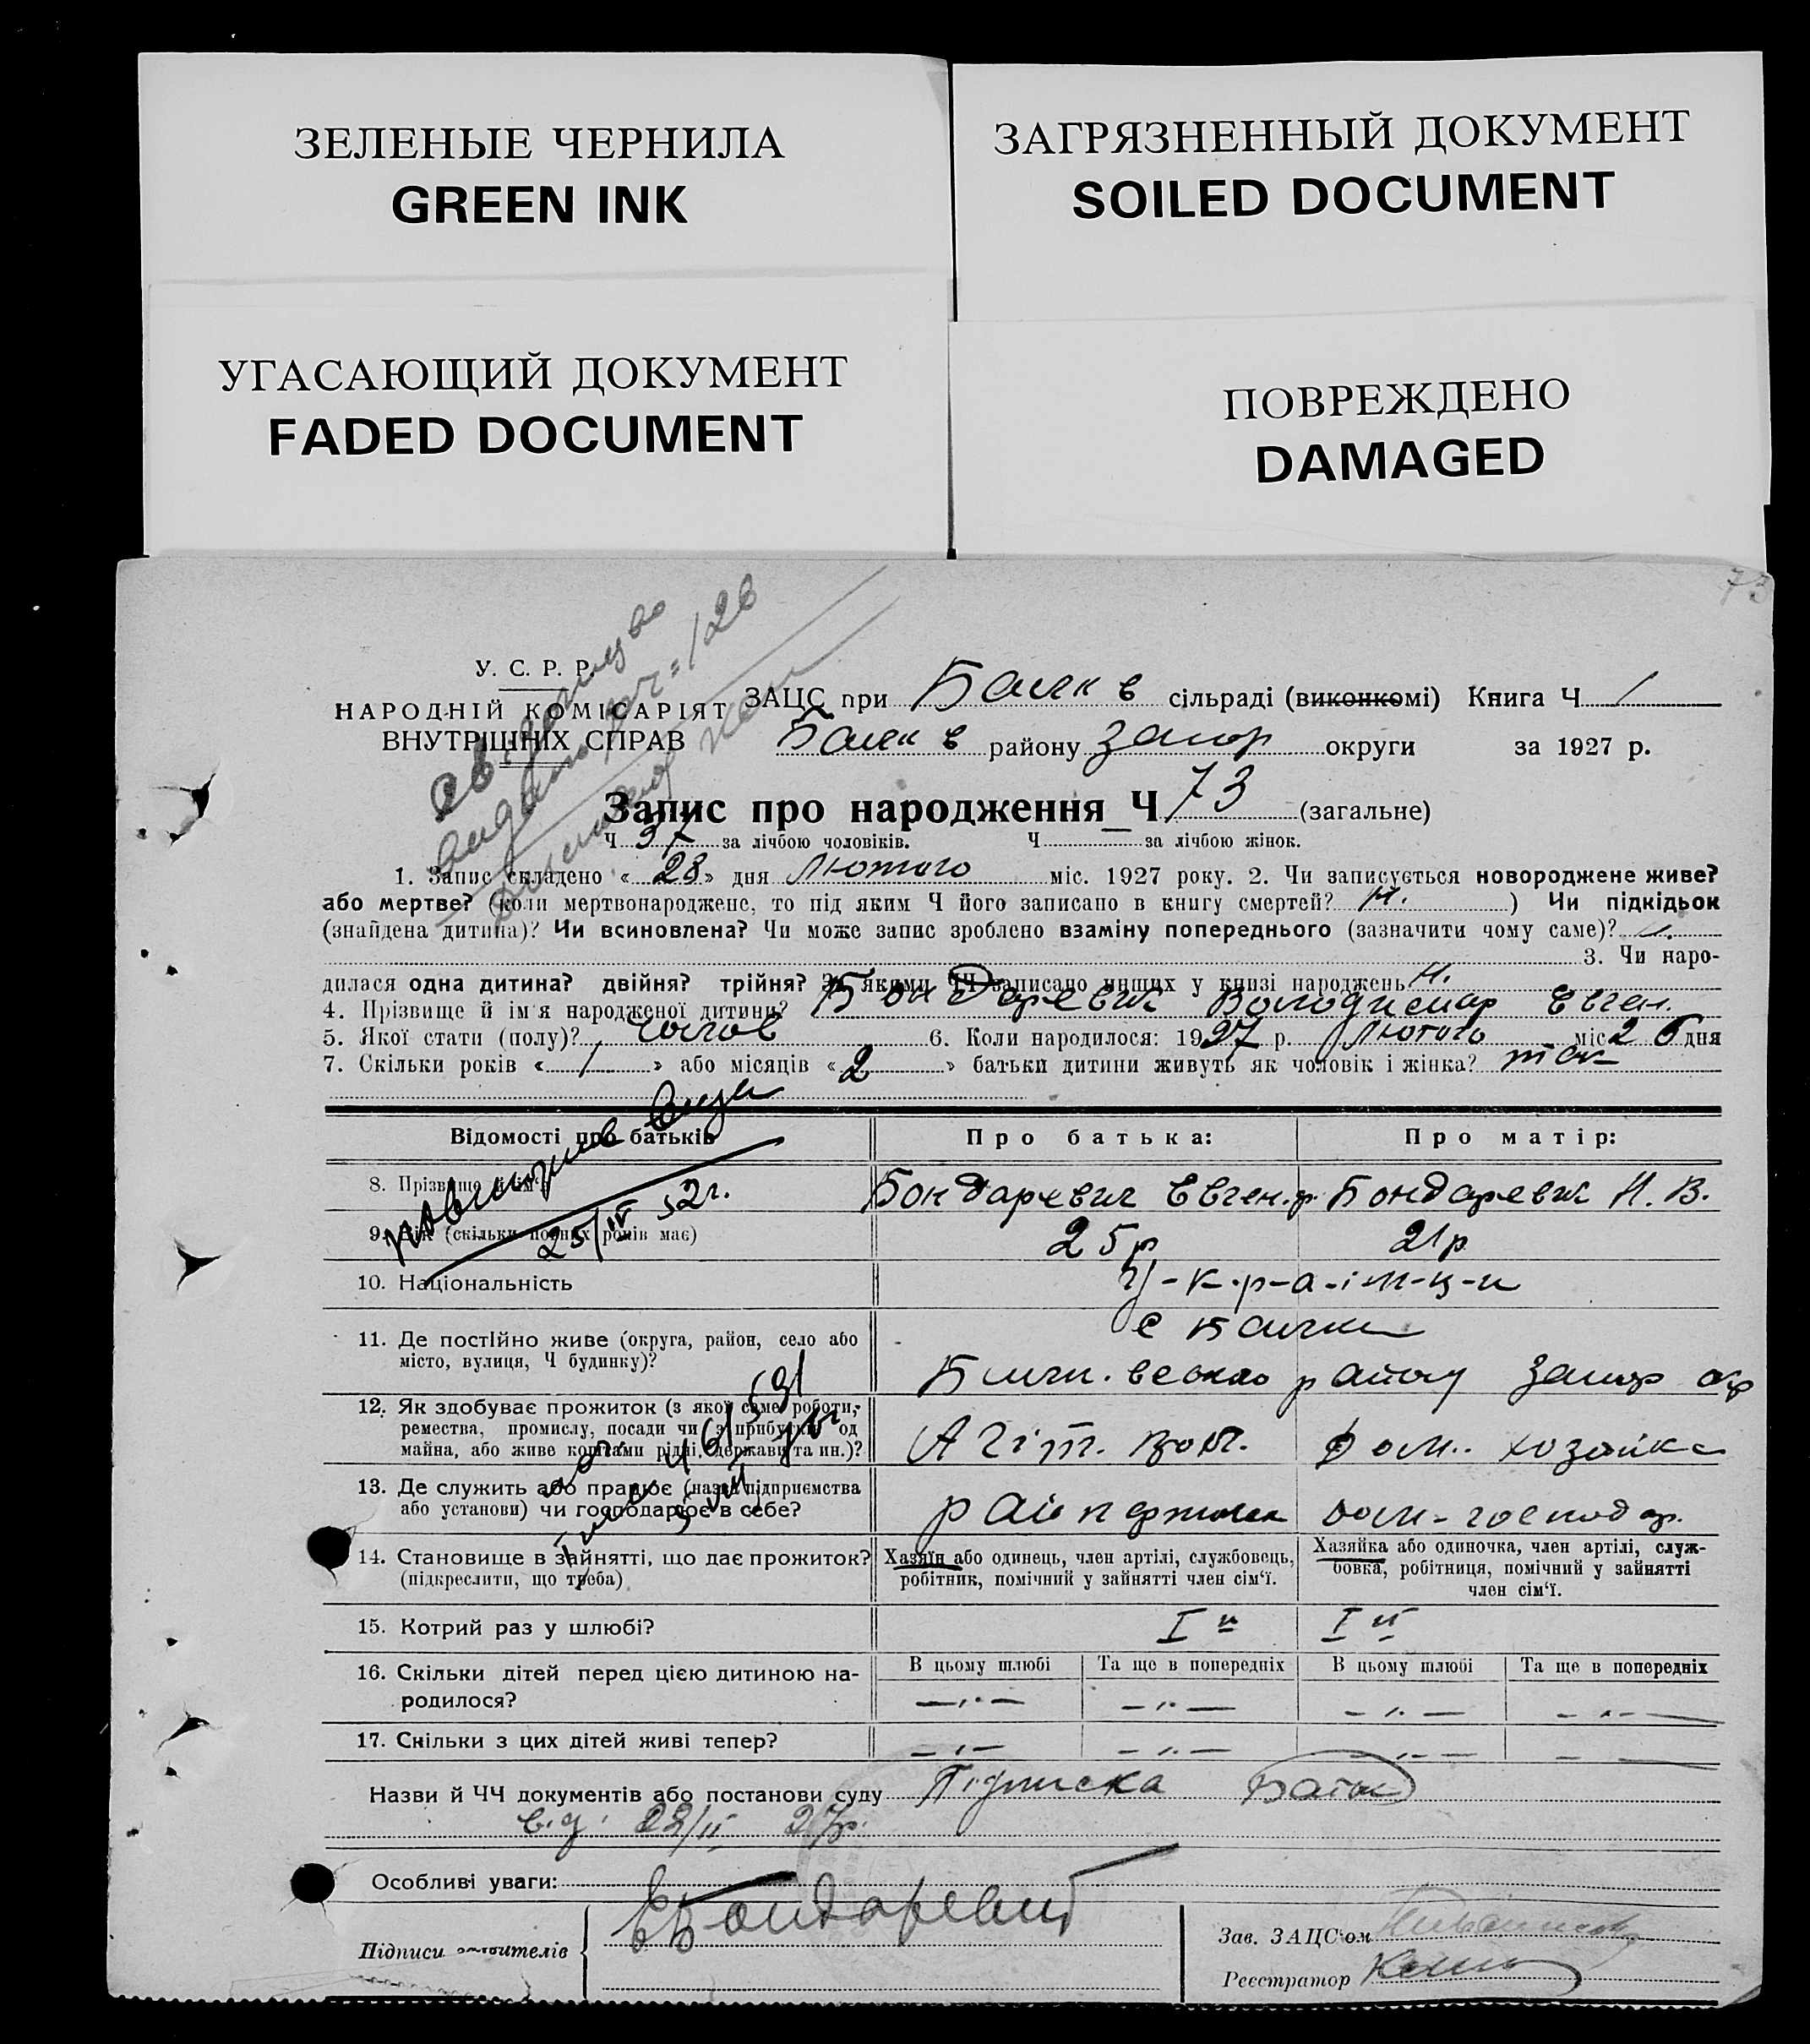 ЗЕЛЕНЫЕ ЧЕРНИЛА
GREEN INK
ЗАГРЯЗНЕННЫЙ ДОКУМЕНТ
SOILED DOCUMENT
УГАСАЮЩИЙ ДОКУМЕНТ
FADED DOCUMENT
ПОВРЕЖДЕНО
DAMAGED
73
У. С. Р. Р.
НАРОДНІЙ КОМІСАРІЯТ
ВНУТРІШНІХ СПРАВ
ЗАЦС при Балк в сільраді (виконкомі) Книга Ч 1
Балк в району Запор округи за 1927 р.
Запис про народження Ч 73 (загальне)
Ч 37 за лічбою чоловіків. Ч за лічбою жінок.
1. Запис складено « 28 » дня Лютого міс. 1927 року. 2. Чи записується новороджене живе?
або мертве? (коли мертвонароджене, то під яким Ч його записано в книгу смертей? н. ) Чи підкідьок
(знайдена дитина)? Чи всиновлена? Чи може запис зроблено взаміну попереднього (зазначити чому саме)?
3. Чи наро-
дилася одна дитина? двійня? трійня? З якими ЧЧ записано инших у книзі народжень н.
4. Прізвище й ім'я народженої дитини? Бондаревич Володимир Євген.
5. Якої стати (полу)? чолов 6. Коли народилося: 1927 р. Лютого міс 25 дня
7. Скільки років « 1 » або місяців « 2 » батьки дитини живуть як чоловік і жінка? так
Відомості про батьків Про батька: Про матір:
8. Прізвище й ім'я Бондаревич Євген. р. Бондаревич Н. В.
9. Вік (скільки повних років має) 25 р 21 р
10. Національність У-к-р-а-ї-н-ц-и
11. Де постійно живе (округа, район, село або
місто, вулиця, Ч будинку)?
с Балки
району Запор окр
12. Як здобуває прожиток (з якої саме роботи,
ремества, промислу, посади чи з прибутків од
майна, або живе коштами рідні, держави та ин.)?
Агіт. дом. хозяйка
13. Де служить або працює (назва підприємства
або установи) чи господарює в себе?
дом-господар.
14. Становище в зайнятті, що дає прожиток?
(підкреслити, що треба)
Хазяїн або одинець, член артілі, службовець,
робітник, помічний у зайнятті член сім'ї.
Хазяйка або одиночка, член артілі, служ-
бовка, робітниця, помічний у зайнятті
член сім'ї.
15. Котрий раз у шлюбі? I й I й
16. Скільки дітей перед цією дитиною на-
родилося?
В цьому шлюбі Та ще в попередніх В цьому шлюбі Та ще в попередніх
17. Скільки з цих дітей живі тепер?
Назви й ЧЧ документів або постанови суду Підписка
від 22/II 27р.
Особливі уваги:
Підписи заявителів ЄБондаревич
Зав. ЗАЦС'ом
Реєстратор
25/IV 52г.